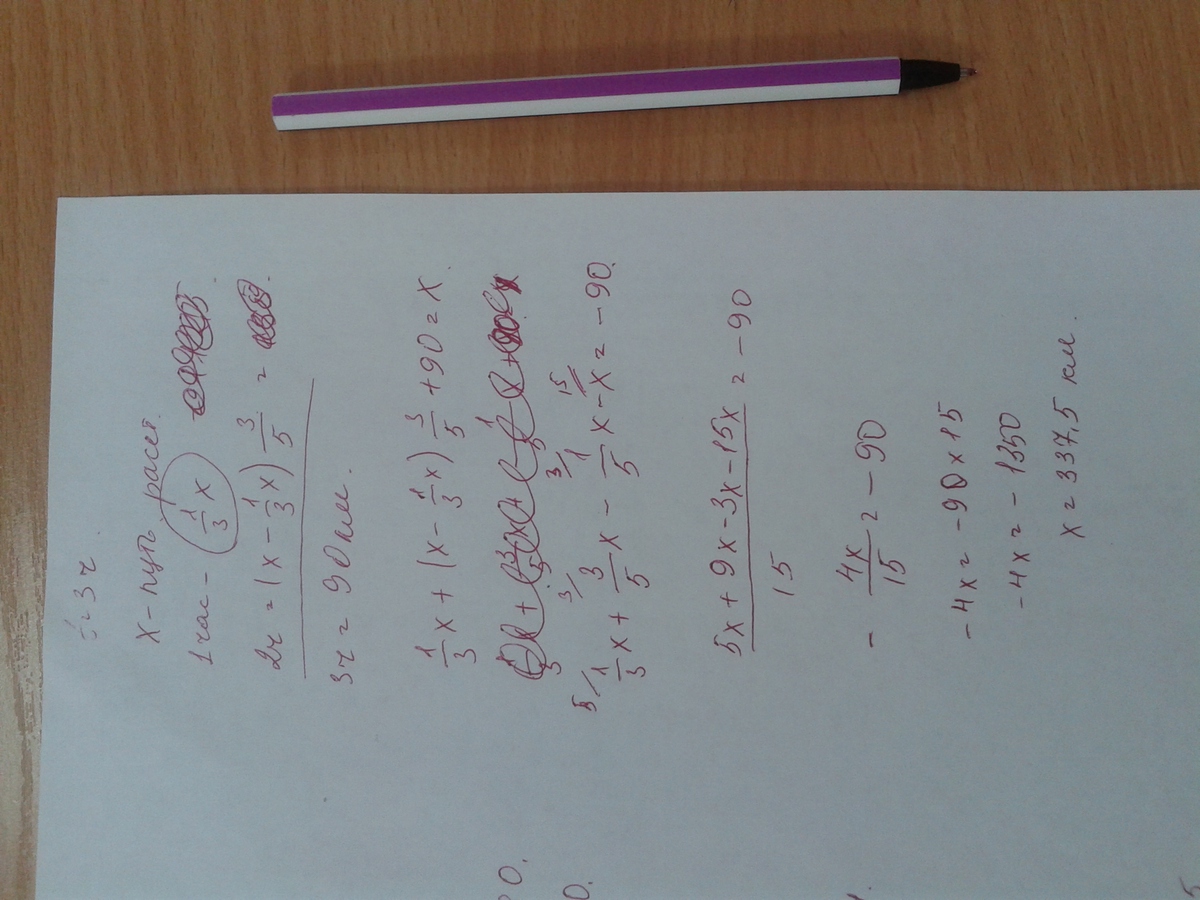 t = 3 ч.
x - путь расст.
1 час - (1/3 x)
2ч = (x - 1/3 x) 3/5 =
3ч = 90 км.
1/3 x + (x - 1/3 x) 3/5 + 90 = x.
5/ 3/ 3/ 15
1/3 x + 3/5 x - 1/5 x - x = -90.
5x + 9x - 3x - 15x / 15 = -90
- 4x/15 = -90
-4x = -90 x 15
-4x = -1350
x = 337,5 км.